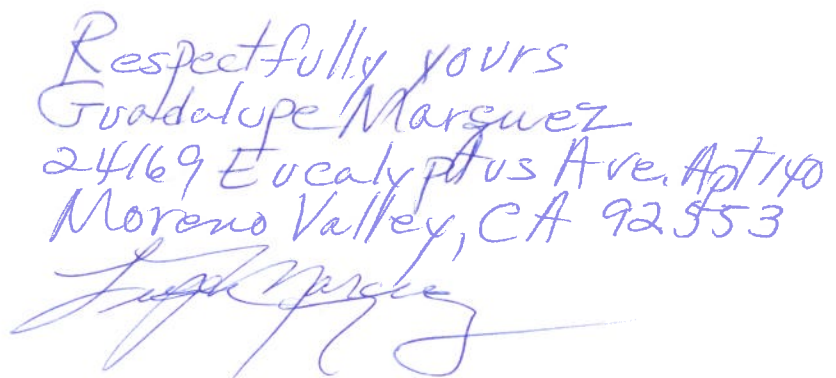 Respectfully yours
Guadalupe Marquez
24169 Eucalyptus Ave. Apt 140
Moreno Valley, CA 92553
Marquez